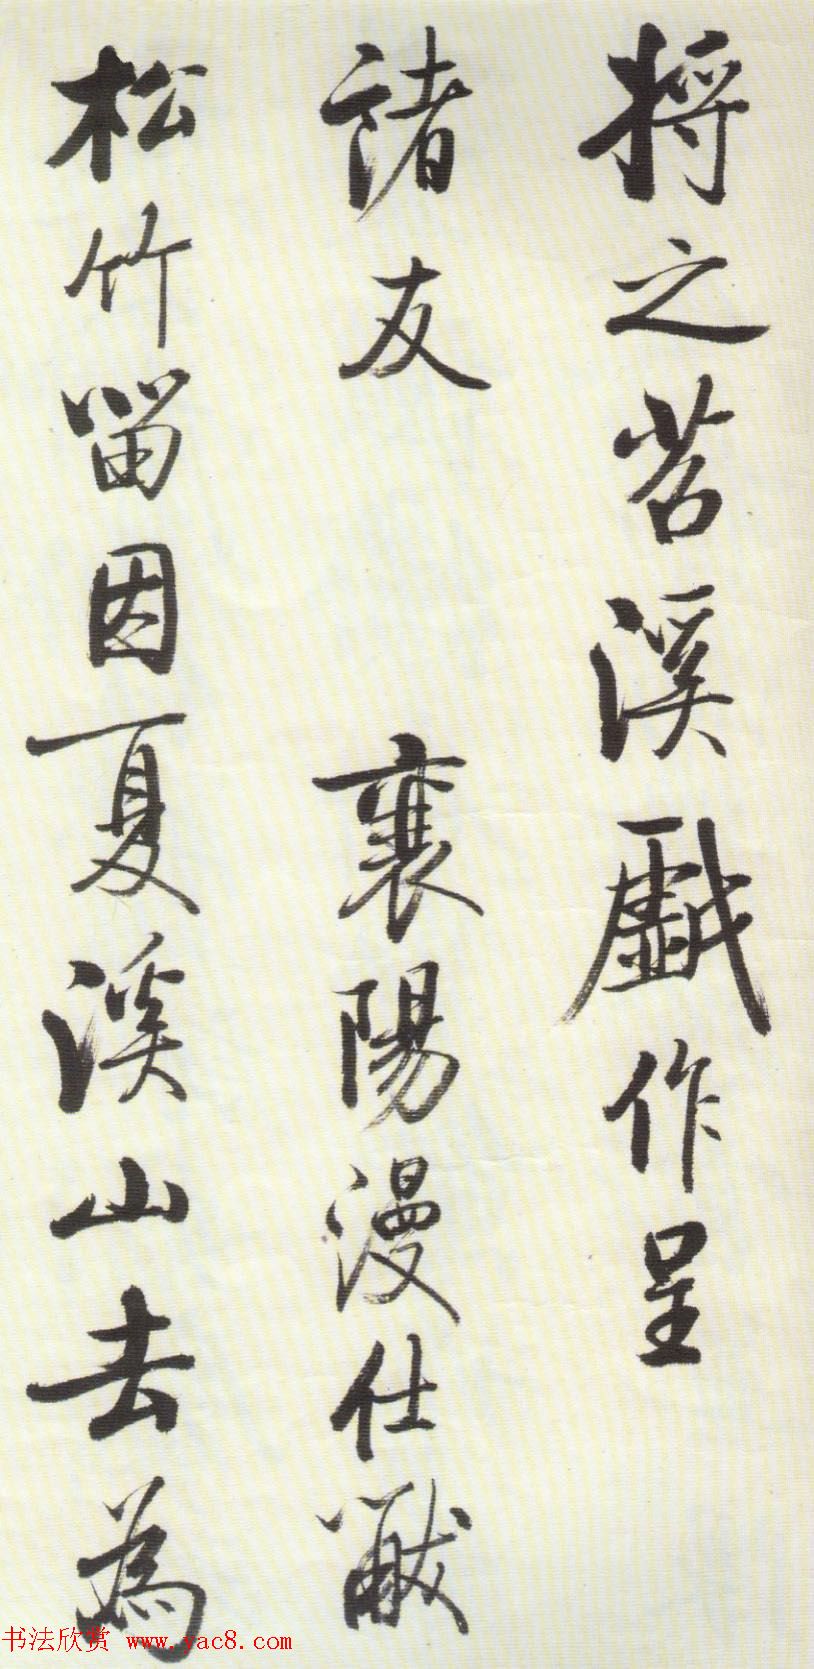 将之苕溪戲作呈
諸友 襄陽漫仕黻
松竹留因夏溪山去為
书法欣赏 www.yac8.com